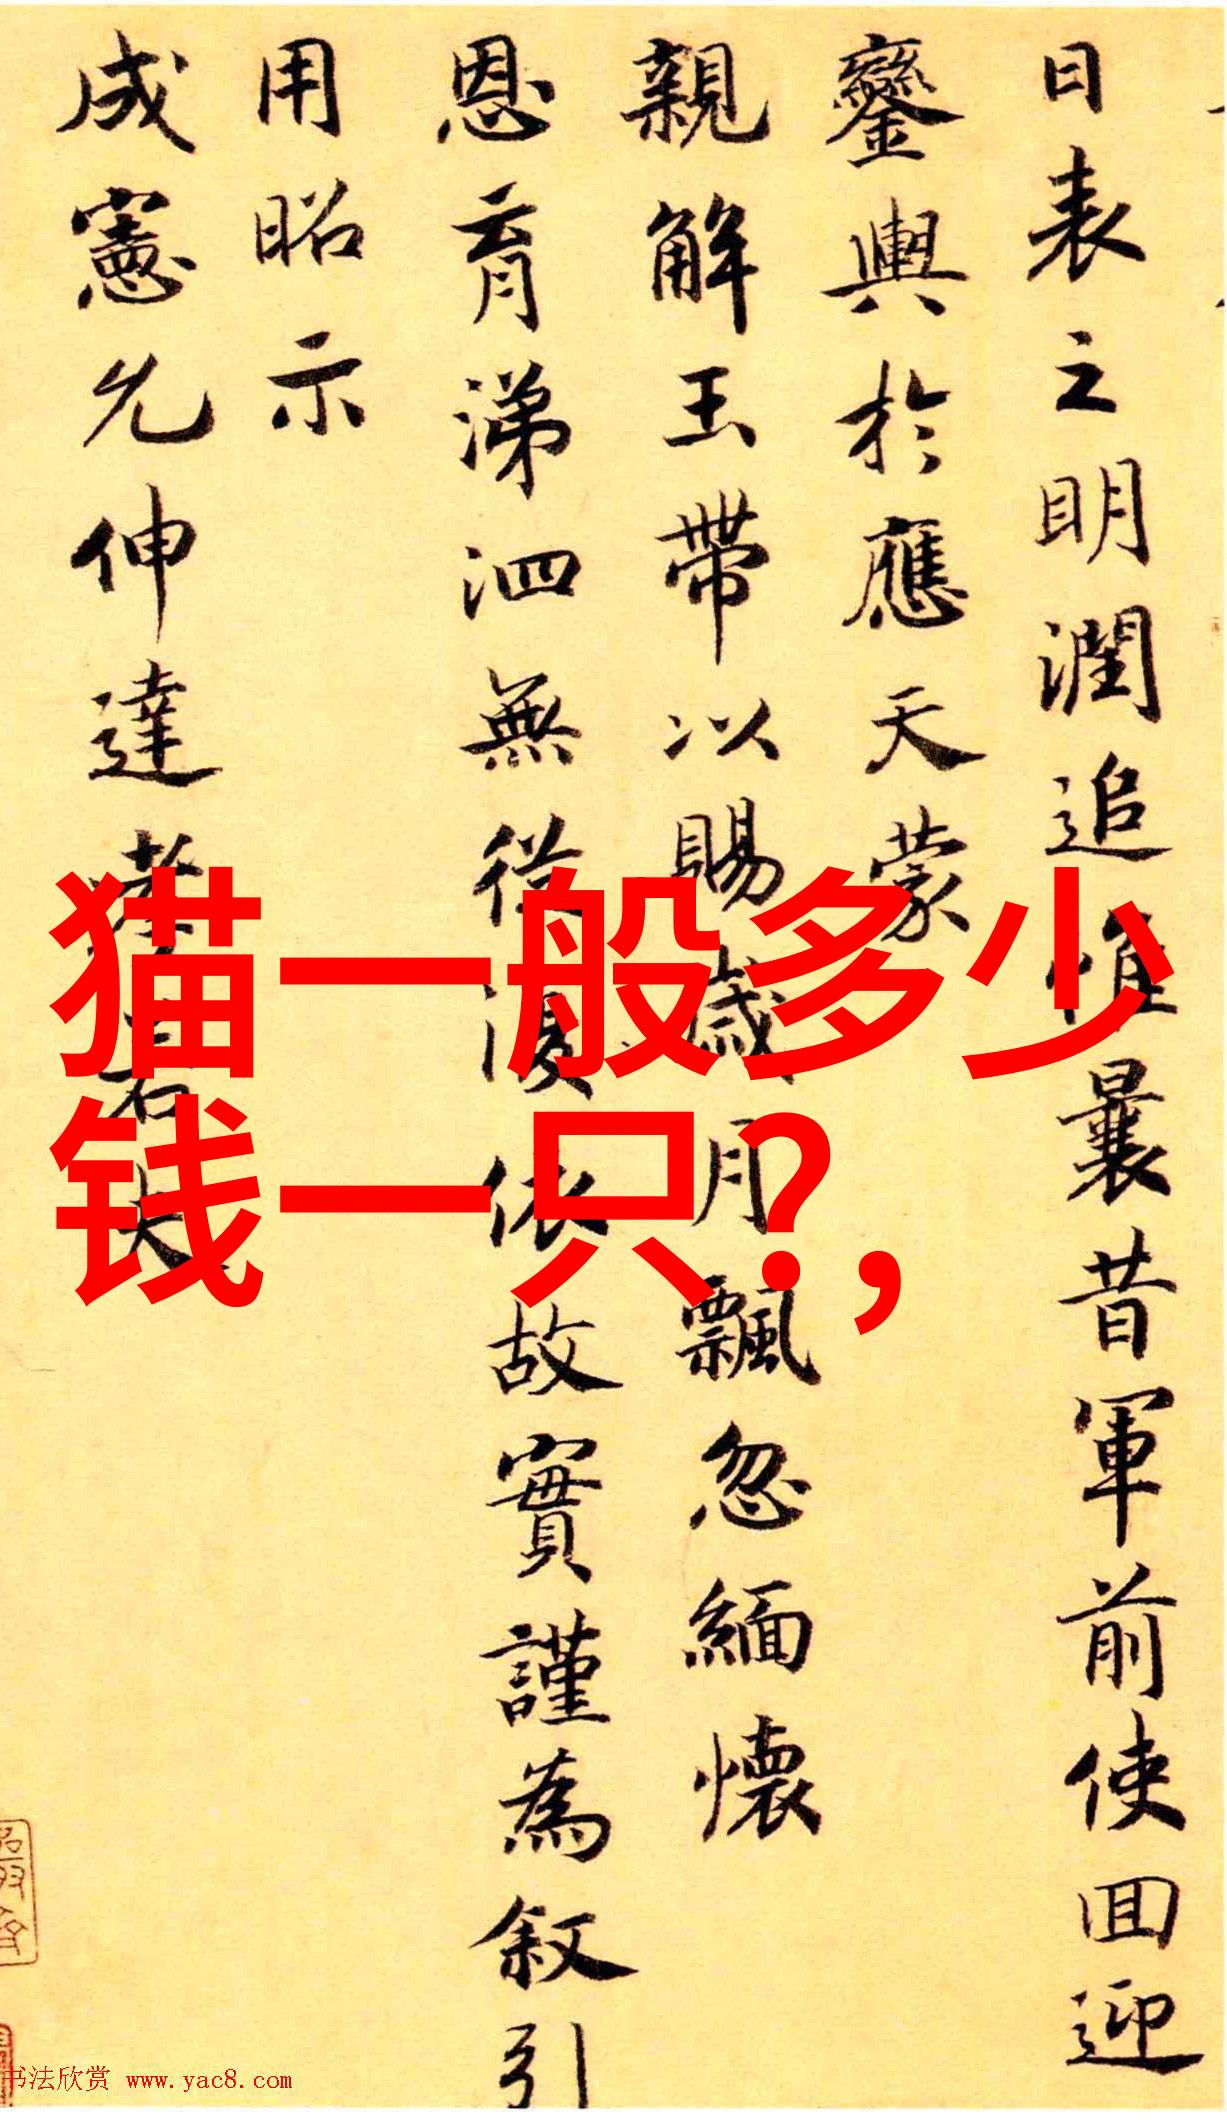 日表之明潤追惟曩昔軍前使回迎
鑾輿於應天蒙
親解玉帶以賜歲月飄忽緬懷
恩育涕泗無從復依故實謹為叙引
用昭示
成憲允伸達孝若夫
猫一般多少
钱一只?,
书法欣赏 www.yac8.com